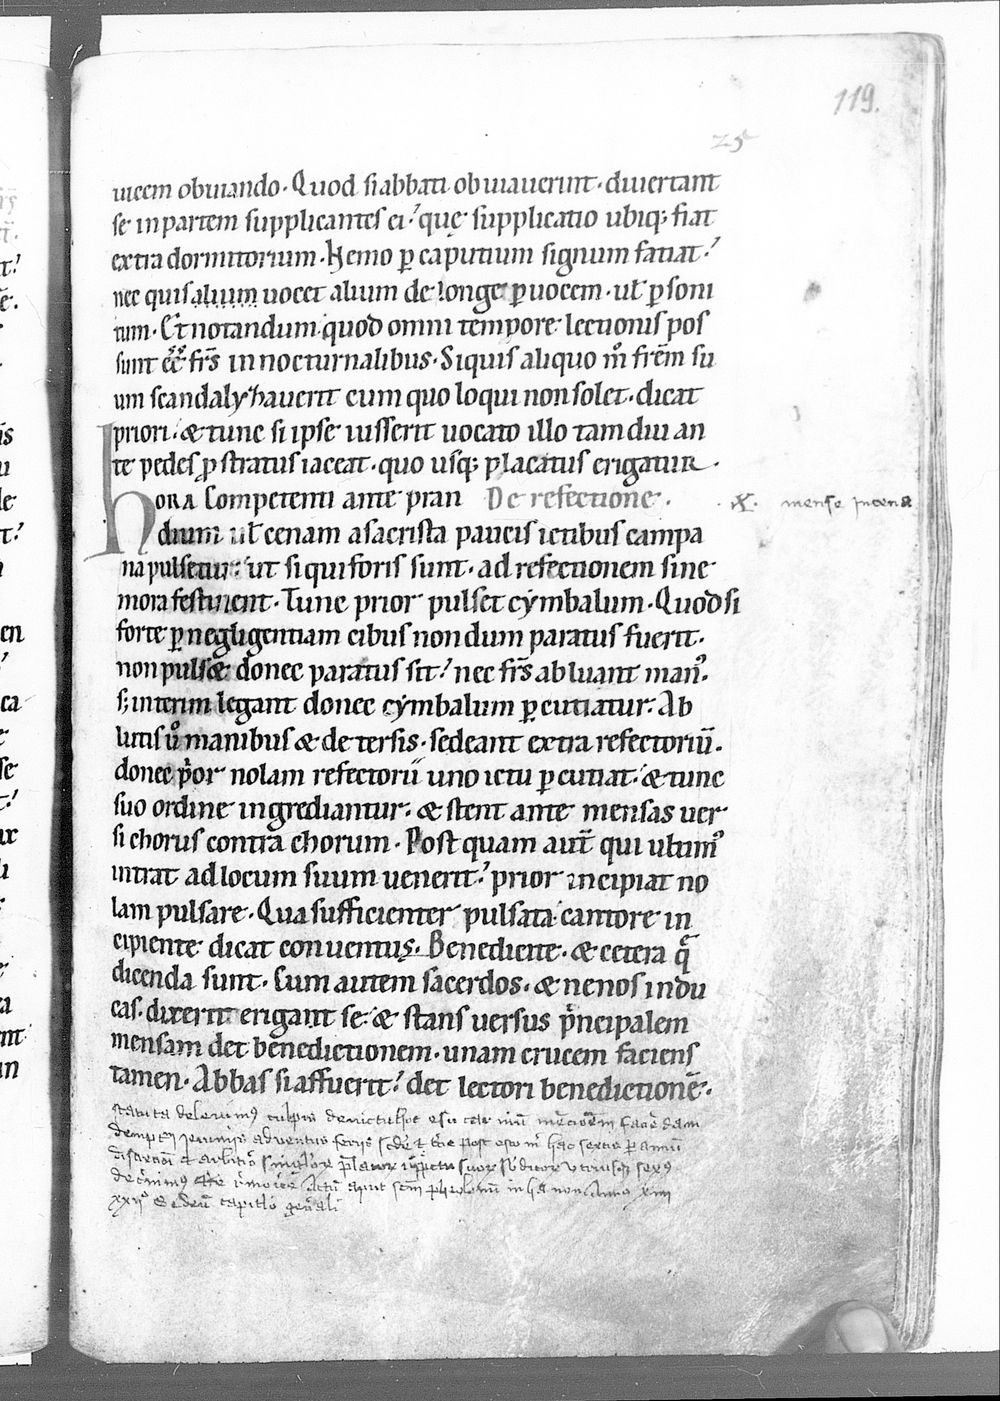 119.
25
uicem obuiando. Quod si abbati obuiauerint. diuertant
se in partem supplicantes ei? quę supplicatio ubiq; fiat
extra dormitorium. Nemo p̲ caputium signum faciat?
nec quis alium uocet alium de longe p̲ uocem. ul̄ p̲ soni
tum. Et notandum quod omni tempore lectionis pos
sunt ēē fr̄s in nocturnalibus. Siquis aliquo m̊ frēm su
um scandalyzauerit cum quo loqui non solet. dicat
priori. & tunc si ipse iusserit uocato illo tamdiu an
te pedes p̱stratus iaceat. quo usq; placatus erigatur.
hora Competenti ante pran De refectione.
mense incena
dium ul̄ cenam a sacrista paucis ictibus campa
na pulsetur: ut si qui foris sunt. ad refectionem sine
mora festinent. Tunc prior pulset cymbalum. Quod si
forte p̲ negligentiam cibus nondum paratus fuerit.
non pulset donec paratus sit? nec fr̄s abluant man᷒.
s; interim legant donec cymbalum p̲cutiatur. Ab
lutis ů manibus & detersis. sedeant extra refectoriū.
donec p̓or nolam refectorii uno ictu p̲cutiat. & tunc
suo ordine ingrediantur. & stent ante mensas uer
si chorus contra chorum. Postquam aut̄ qui ultim᷒
intrat ad locum suum uenerit? prior incipiat no
lam pulsare. Qua sufficienter pulsata cantore in
cipiente dicat conuentus. Benedicite. & cetera q̄
dicenda sunt. Cum autem sacerdos. & ne nos indu
cas. dixerit erigant se & stans uersus p̓ncipalem
mensam det benedictionem. unam crucem faciens
tamen. Abbas si affuerit? det lectori benedictionē.
statuta delevim᷒ culpis
dempt jeiuniis adventus feriis post